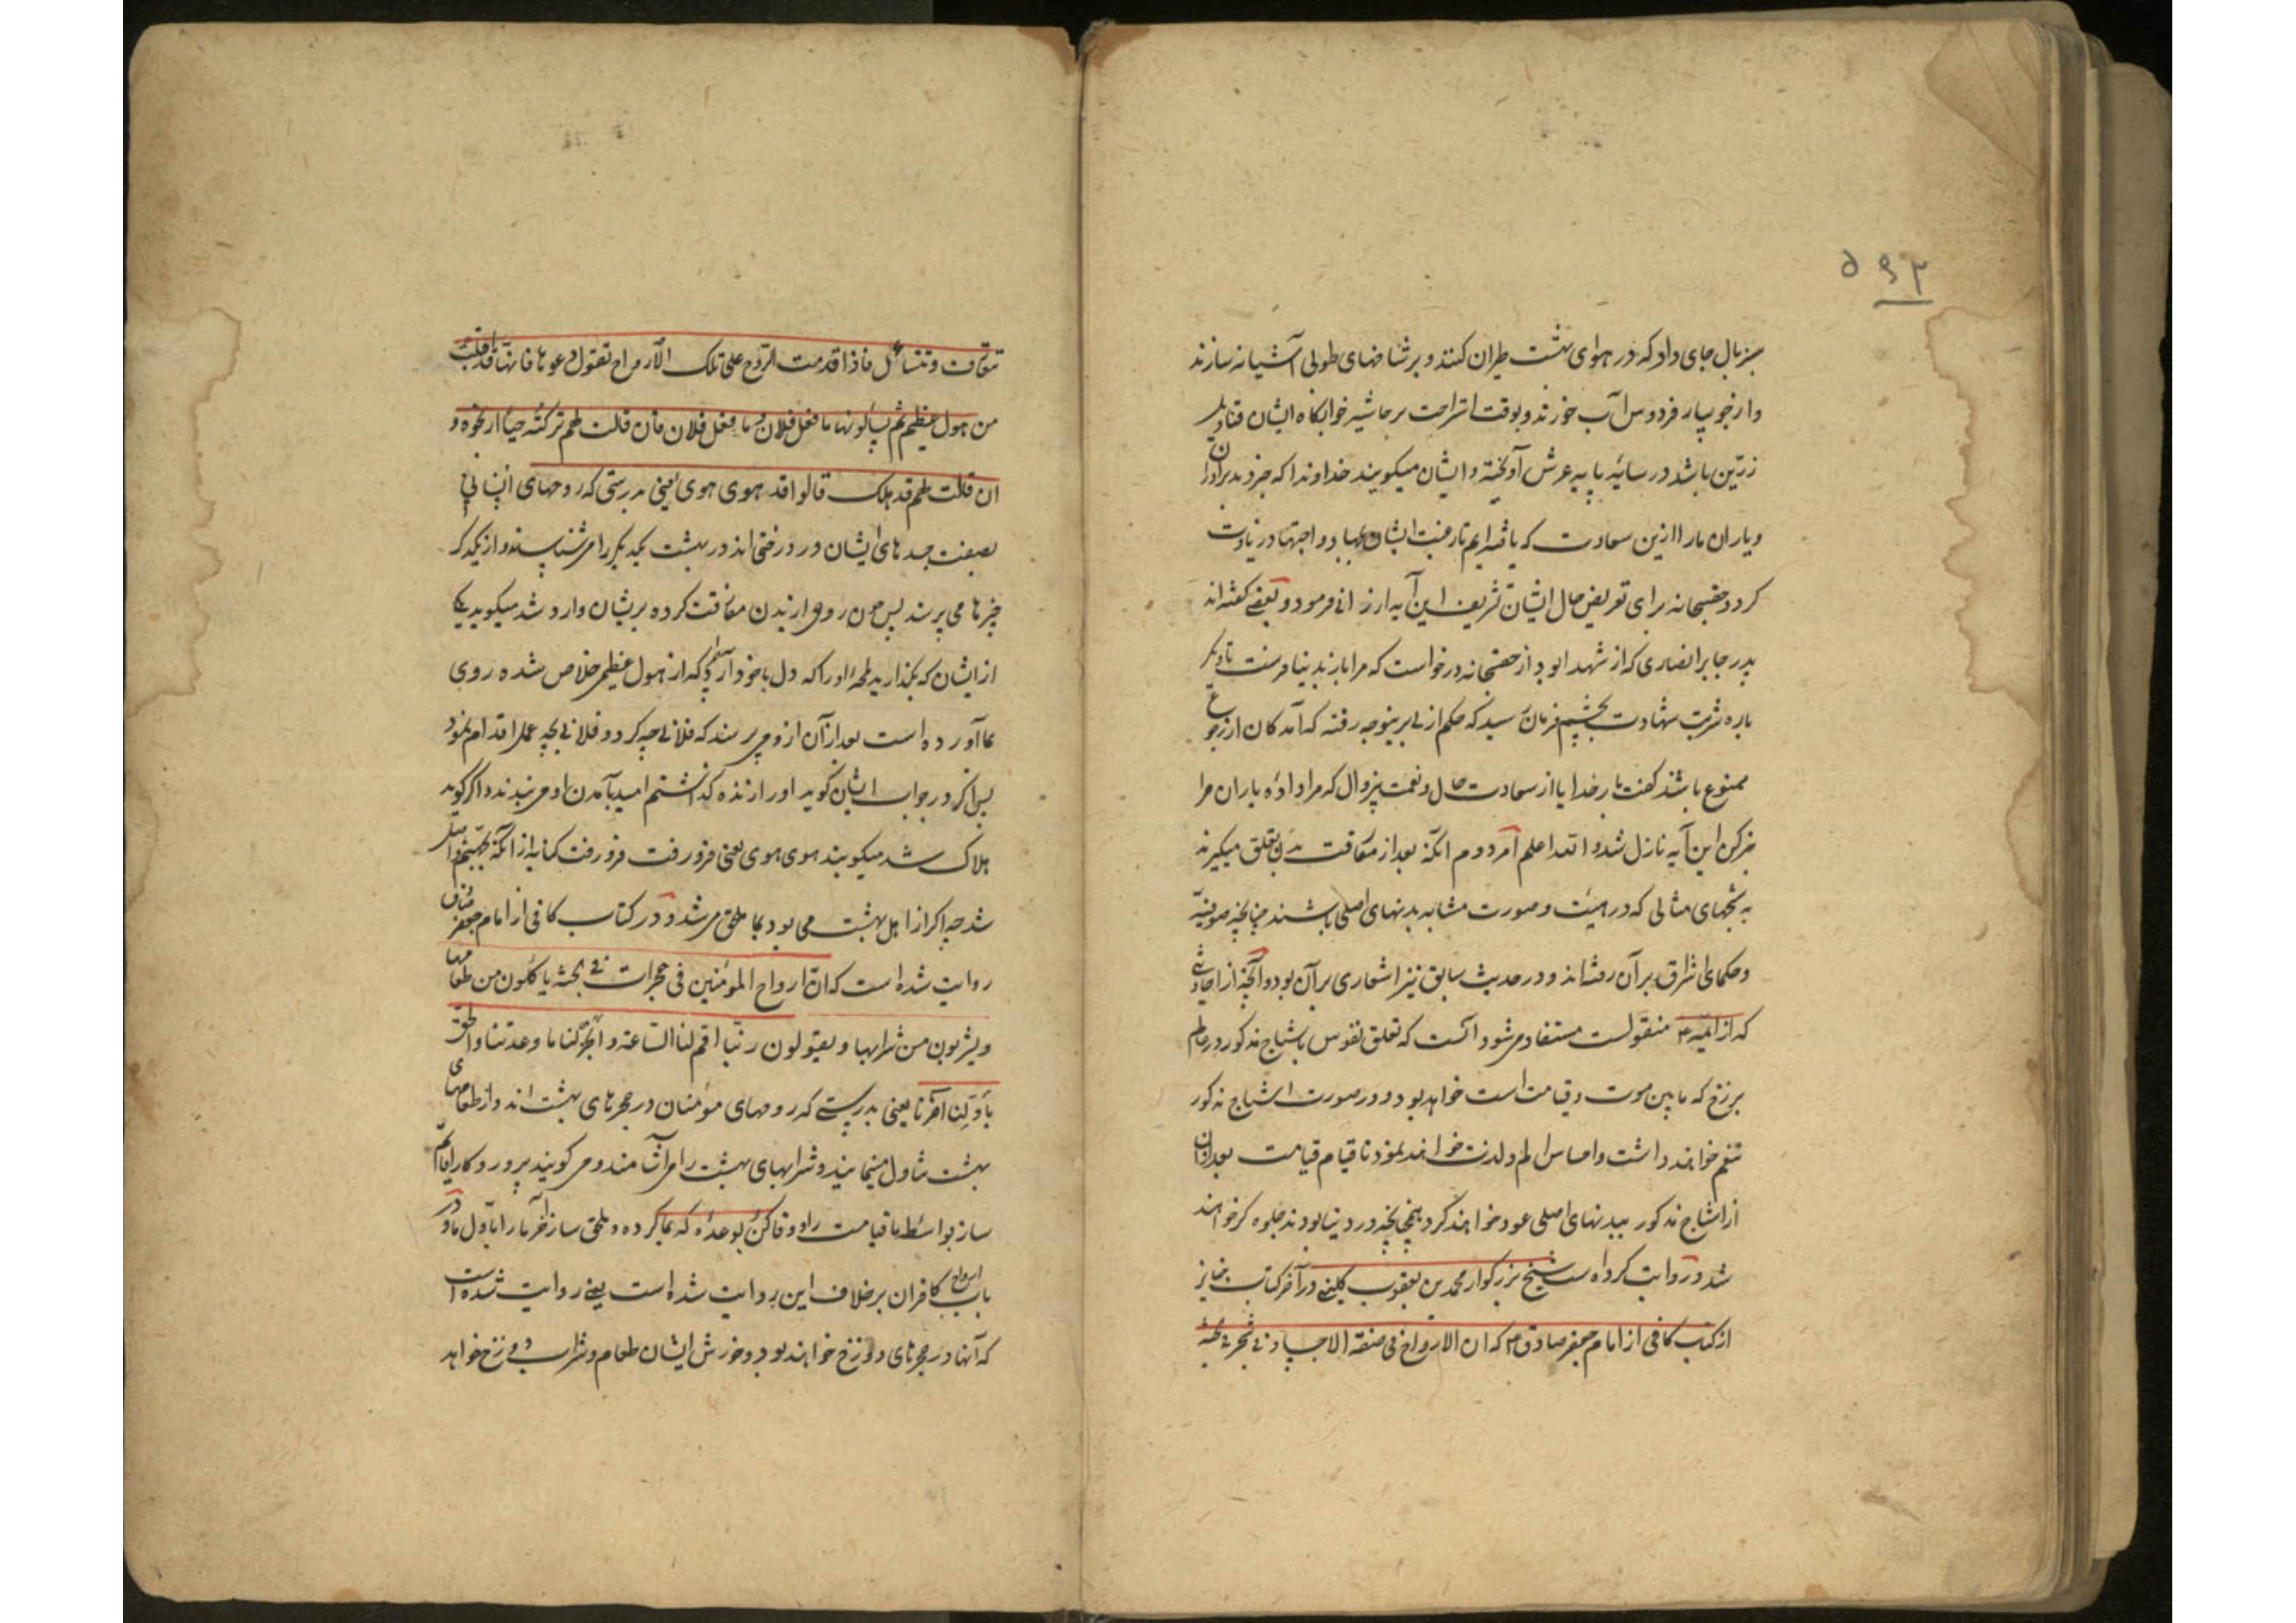 ۵۹۳
سبز بال جای داد که در هوای بهشت طیران کنند و بر شاخهای طوبی آشیانه سازند
و از جویبار فردوس آب خورند و بوقت استراحت بر حاشیه خوابگاه ایشان قنادیل
زرّین باشد در سایه پایه عرش آویخته و ایشان میگویند خداوندا که خبر دهد برادران
و یاران ما را ازین سعادت که یافته ایم تا رغبت ایشان بجهاد و اجتهاد زیادت
کردد حقسبحانه برای تعریض حال ایشان تشریف این آیه ارزانی فرمود و بعضی کفته اند
پدر جابر انصاری که از شهدا بود از حقسبحانه درخواست که مرا باز بدنیا فرست تا دیگر
باره شربت شهادت بچشم فرمان رسید که حکم ازلی برینوجه رفته که آمدکان از رجوع
ممنوع باشند کفت بار خدایا از سعادت حال و نعمت بیزوال که مرا داده یاران مرا
خبر کن این آیه نازل شد و الله اعلم امر دوم آنکه بعد از مفارقت بدن تعلق میگیرند
به شبحهای مثالی که در هیئت و صورت مشابه بدنهای اصلی باشند چنانچه صوفیّه
و حکمای اشراق بر آن رفته اند و در حدیث سابق نیز اشعاری بر آن بود و آنچه از احادیثی
که از ائمّه ع منقولست مستفاد میشود آنست که تعلق نفوس باشباح مذکور در عالم
برزخ که ما بین موت و قیامت است خواهد بود و در صورت اشباح مذکور
تنعم خواهند داشت و احساس الم و لذت خواهند نمود تا قیام قیامت بعد از آن
از اشباح مذکور ببدنهای اصلی عود خواهند کرد همچنانچه در دنیا بودند جلوه گر خواهند
شد و روایت کرده است شیخ بزرکوار محمد بن یعقوب کلینی در آخر کتاب جنایز
از کتب کافی از امام جعفر صادق ع که ان الارواح فی صفة الاجساد فی شجر فی الجنة
تتعارف و تتسائل فاذا قدمت الرّوح علی تلک الارواح تقول دعوها فانها قد اقبلت
من هول عظیم ثم یسألونها ما فعل فلان و ما فعل فلان فان قالت لهم ترکته حیّا ارتجوه و
ان قالت لهم قد هلک قالوا قد هوی هوی یعنی بدرستی که روحهای انسانی
بصفت جسدهای ایشان در درختی اند در بهشت یکدیگر را میشناسند و از یکدگر
چیزها می پرسند پس چون روحی از بدن مفارقت کرده بریشان وارد شد میکوید یکی
از ایشان که بگذارید لحظه او را که دل با خود آرد که از هول عظیمی خلاص شده روی
بما آورده است بعد از آن ازو می پرسند که فلانی چه کرد و فلانی بچه عمل اقدام نمود
پس اگر در جواب ایشان کوید او را زنده کذاشتم امید بآمدن او می بندند و اکر کوید
هلاک شد میکویند هوی هوی یعنی فرو رفت فرو رفت کنایه از آنکه بجهنم واصل
شد چه اکر از اهل بهشت می بود بما ملحق میشد و در کتاب کافی از امام جعفر صادق
روایت شده است که انّ ارواح المؤمنین فی حجرات فی الجنّة یاکلون من طعامها
و یشربون من شرابها و یقولون ربّنا اقم لنا الساعة و انجز لنا ما وعدتنا و الحق
باوّلنا آخرنا یعنی بدرستی که روحهای مؤمنان در حجرهای بهشت اند و از طعامهای
بهشت تناول مینمایند و شرابهای بهشت را می آشامند و می کویند پروردکارا قایم
ساز بواسطه ما قیامت را و وفا کن بوعده که بما کرده و ملحق ساز آخر ما را باوّل ما و در
باب ارواح کافران بر خلاف این روایت شده است یعنی روایت شده است
که آنها در حجرهای دوزخ خواهند بود و خورش ایشان طعام و شراب دوزخ خواهد